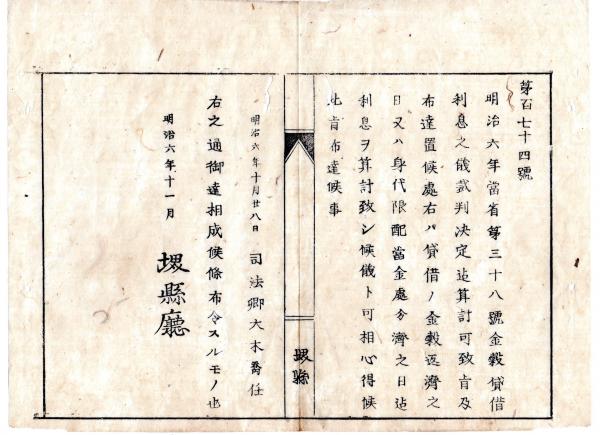 第百七十四號
明治六年當省第三十八號金穀貸借
利息之儀裁判決定迄算計可致旨及
布達置候處右ハ貸借ノ金穀返濟之
日又ハ身代限配當金處分濟之日迄
利息ヲ算計致シ候儀ト可相心得候
此旨布達候事
堺縣
明治六年十月廿八日 司法卿大木喬任
右之通御達相成候條布令スルモノ也
明治六年十一月
堺縣廳